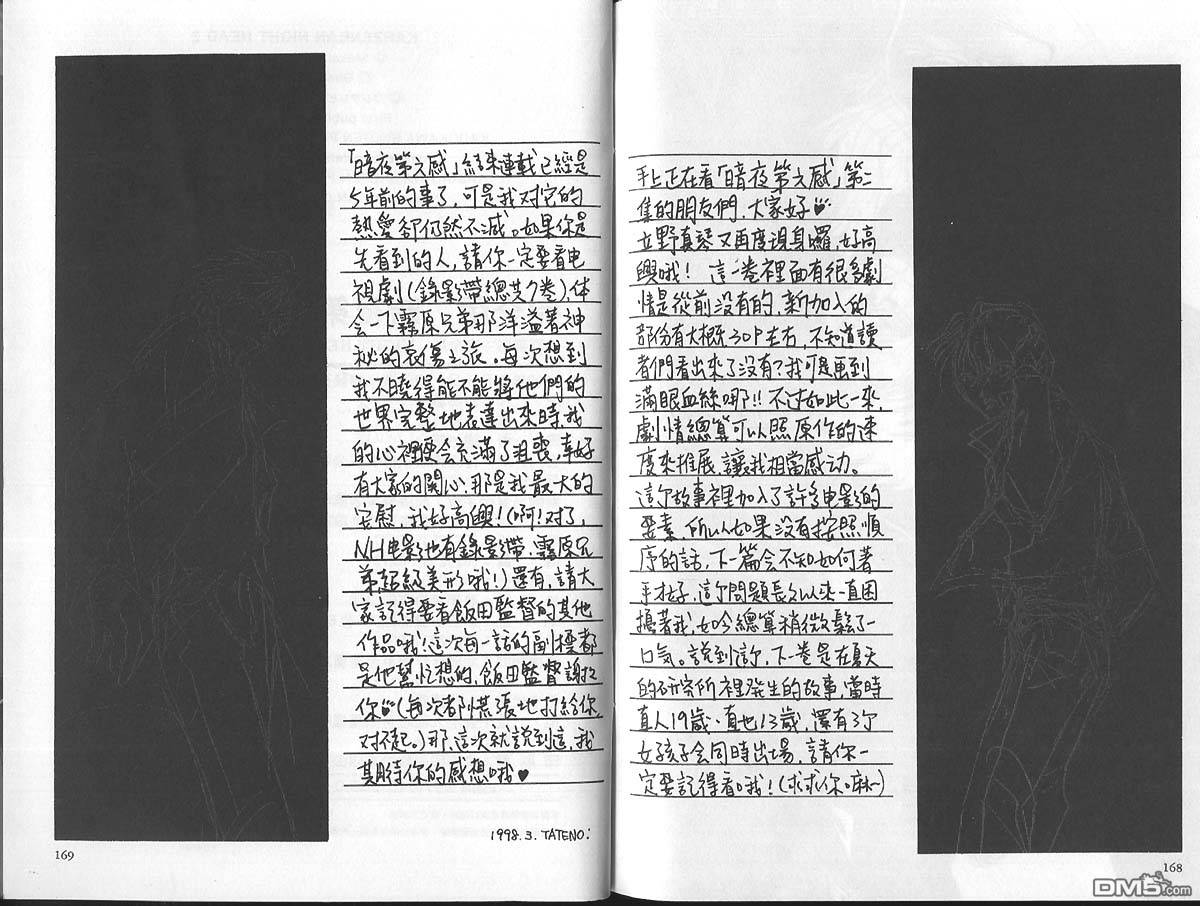 手上正在看「暗夜第六感」第二
集的朋友們,大家好
立野真琴又再度現身囉,好高
興哦! 這一卷裡面有很多劇
情是從前沒有的,新加入的
部份有大概30P左右,不知道讀
者們看出來了沒有?我可是畫到
滿眼血絲哪!! 不过如此一來,
劇情總算可以照原作的速
度來推展,讓我相當感动。
這个故事裡加入了許多电影的
要素,所以如果沒有按照順
序的話,下一篇会不知如何著
手才好,這个問題長久以來一直困
擾著我,如今總算稍微鬆了一
口气。說到這,下一卷是在夏天
的研究所裡發生的故事,當時
直人19歲、直也13歲,還有3个
女孩子会同時出場,請你一
定要記得看哦!(求求你嘛~)
168
「暗夜第六感」結束連載已經是
5年前的事了,可是我对它的
熱愛卻仍然不減。如果你是
先看到的人,請你一定要看电
視劇(錄影帶總共7卷),体
会一下霧原兄弟那洋溢著神
秘的哀傷之旅。每次想到
我不曉得能不能將他們的
世界完整地表達出來時,我
的心裡便会充滿了沮喪,幸好
有大家的關心,那是我最大的
安慰,我好高興!(啊!对了,
NH电影也有錄影帶,霧原兄
弟超級美形哦!)還有,請大
家記得要看飯田監督的其他
作品哦!這次每一話的副標都
是他幫忙想的,飯田監督謝謝
你(每次都慌張地打給你,
对不起。)那,這次就說到這,我
期待你的感想哦♥
1998.3. TATENO:
169
DM5.com